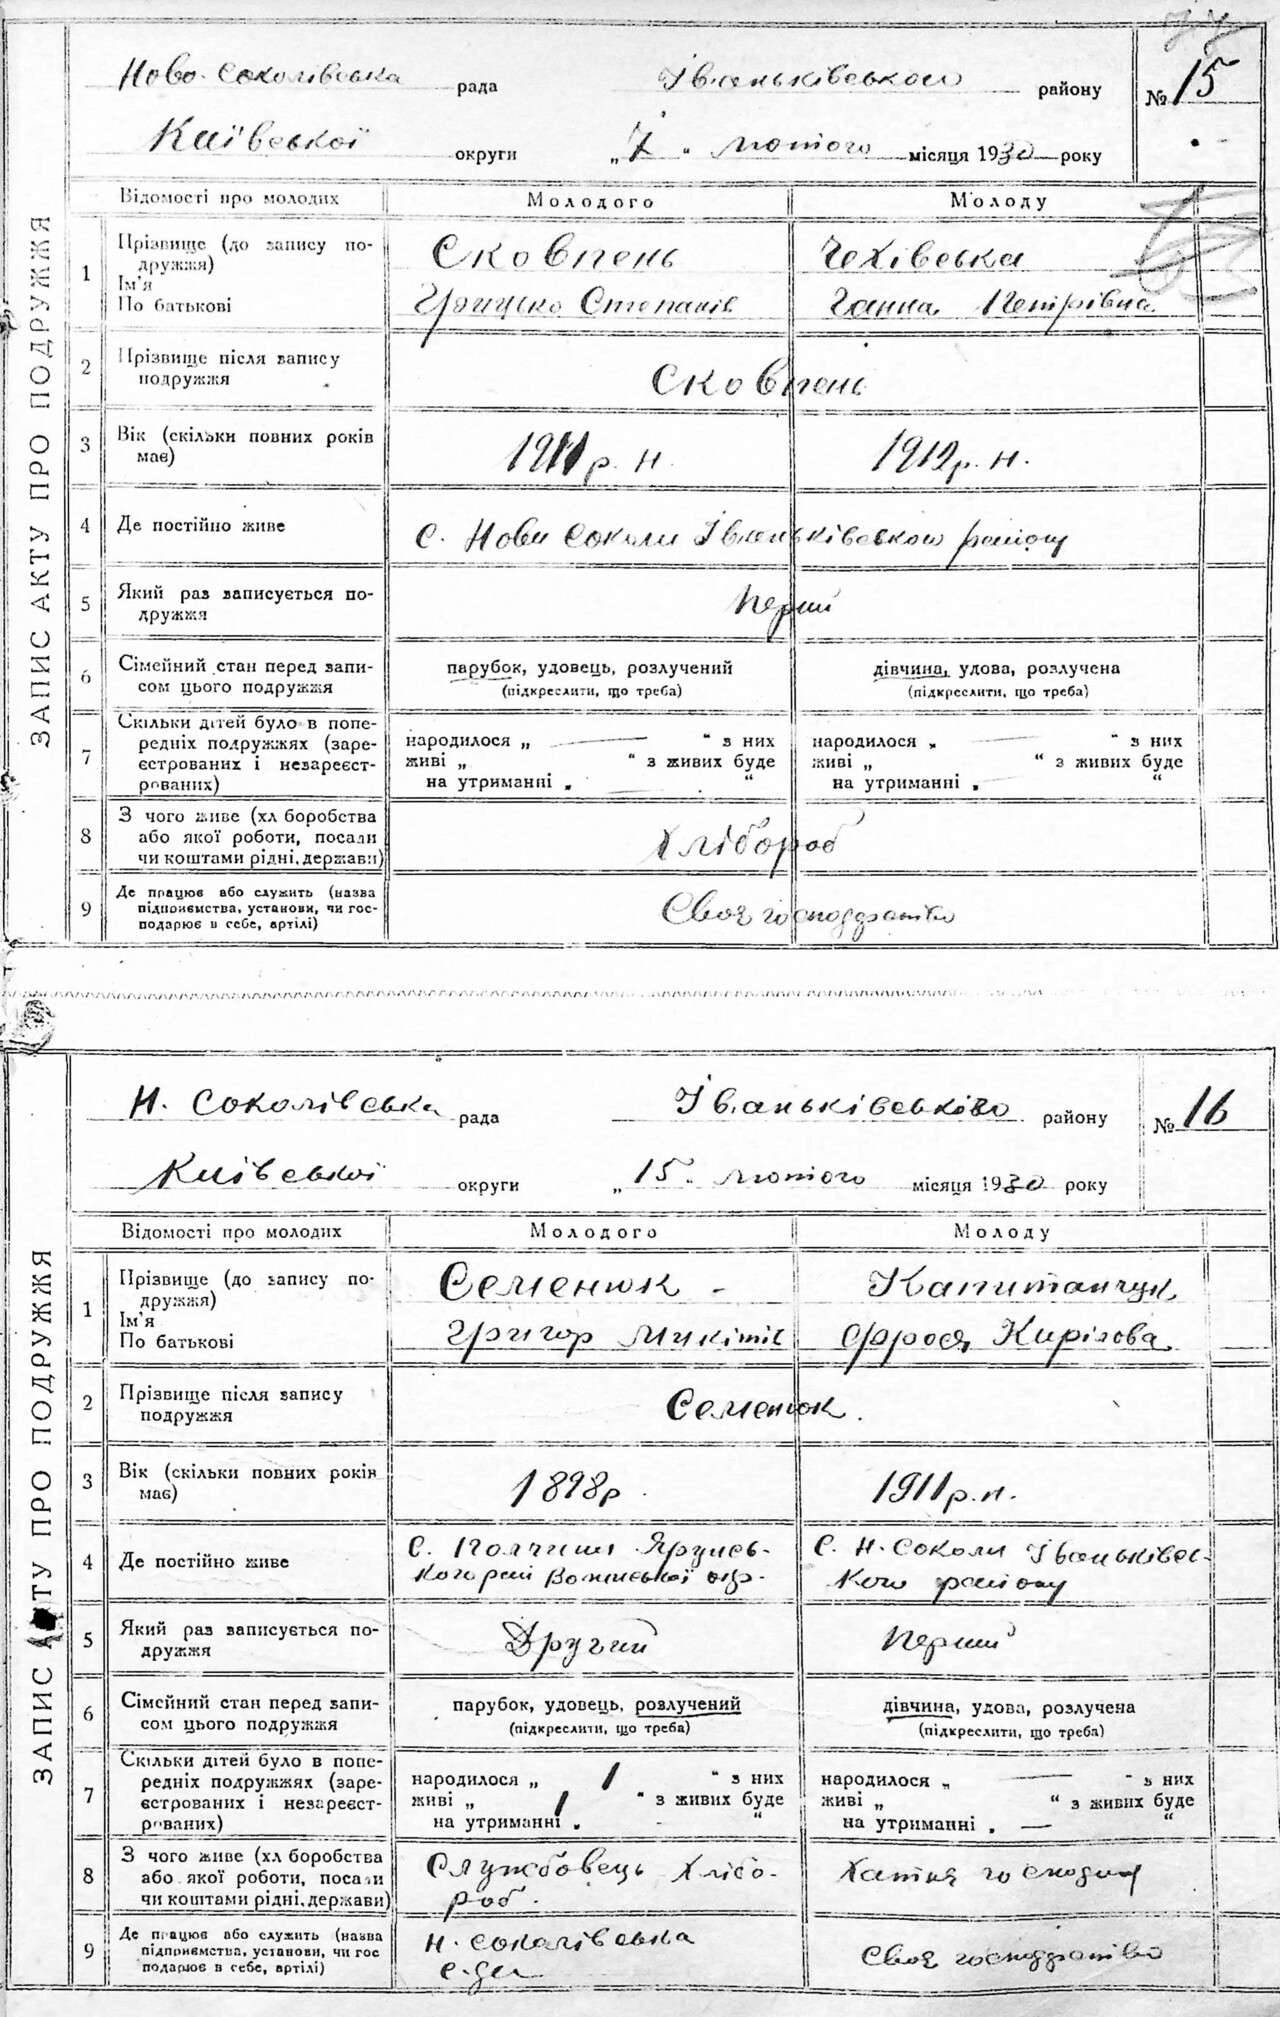 ЗАПИС АКТУ ПРО ПОДРУЖЖЯ
Ново-Соколівська рада Іваньківського району № 15
Київської округи „7“ лютого місяця 1930 року
Відомості про молодих Молодого Молоду
1 Прізвище (до запису по-
дружжя) Сковпень Чехівська
Ім'я
По батькові Грицько Степанів Ганна Петрівна
2 Прізвище після запису
подружжя Сковпень
3 Вік (скільки повних років
має) 1911 р. н. 1912 р. н.
4 Де постійно живе с. Нови Соколи Іваньківського району
5 Який раз записується по-
дружжя Перший
6 Сімейний стан перед запи- парубок, удовець, розлучений дівчина, удова, розлучена
сом цього подружжя (підкреслити, що треба) (підкреслити, що треба)
7 Скільки дітей було в попе-
редніх подружжях (заре- народилося „ — “ з них народилося „ — “ з них
єстрованих і незареєст- живі „ “ з живих буде живі „ “ з живих буде
рованих) на утриманні „ — “ на утриманні „ — “
8 З чого живе (хліборобства
або якої роботи, посади Хлібороб
чи коштами рідні, держави)
9 Де працює або служить (назва
підприємства, установи, чи гос- Своя господарство
подарює в себе, артілі)
ЗАПИС АКТУ ПРО ПОДРУЖЖЯ
Н. Соколівська рада Іваньківського району № 16
Київської округи „15“ лютого місяця 1930 року
Відомості про молодих Молодого Молоду
1 Прізвище (до запису по-
дружжя) Семенюк - Капитанчук
Ім'я
По батькові Григор Микітів Фрося Кирілова
2 Прізвище після запису
подружжя Семенюк.
3 Вік (скільки повних років
має) 1898р. 1911 р. н.
4 Де постійно живе с. Ярунсь- с. Н. Соколи Іваньківсь-
кого рай Волинської окр. кого району
5 Який раз записується по-
дружжя Другий Перший
6 Сімейний стан перед запи- парубок, удовець, розлучений дівчина, удова, розлучена
сом цього подружжя (підкреслити, що треба) (підкреслити, що треба)
7 Скільки дітей було в попе-
редніх подружжях (заре- народилося „ 1 “ з них народилося „ — “ з них
єстрованих і незареєст- живі „ 1 “ з живих буде живі „ “ з живих буде
рованих) на утриманні „ - “ на утриманні „ — “
8 З чого живе (хліборобства
або якої роботи, посади Службовець хлібо- Хатня господ
чи коштами рідні, держави) роб.
9 Де працює або служить (назва Н. Соколівська
підприємства, установи, чи гос Своя господарство
подарює в себе, артілі)